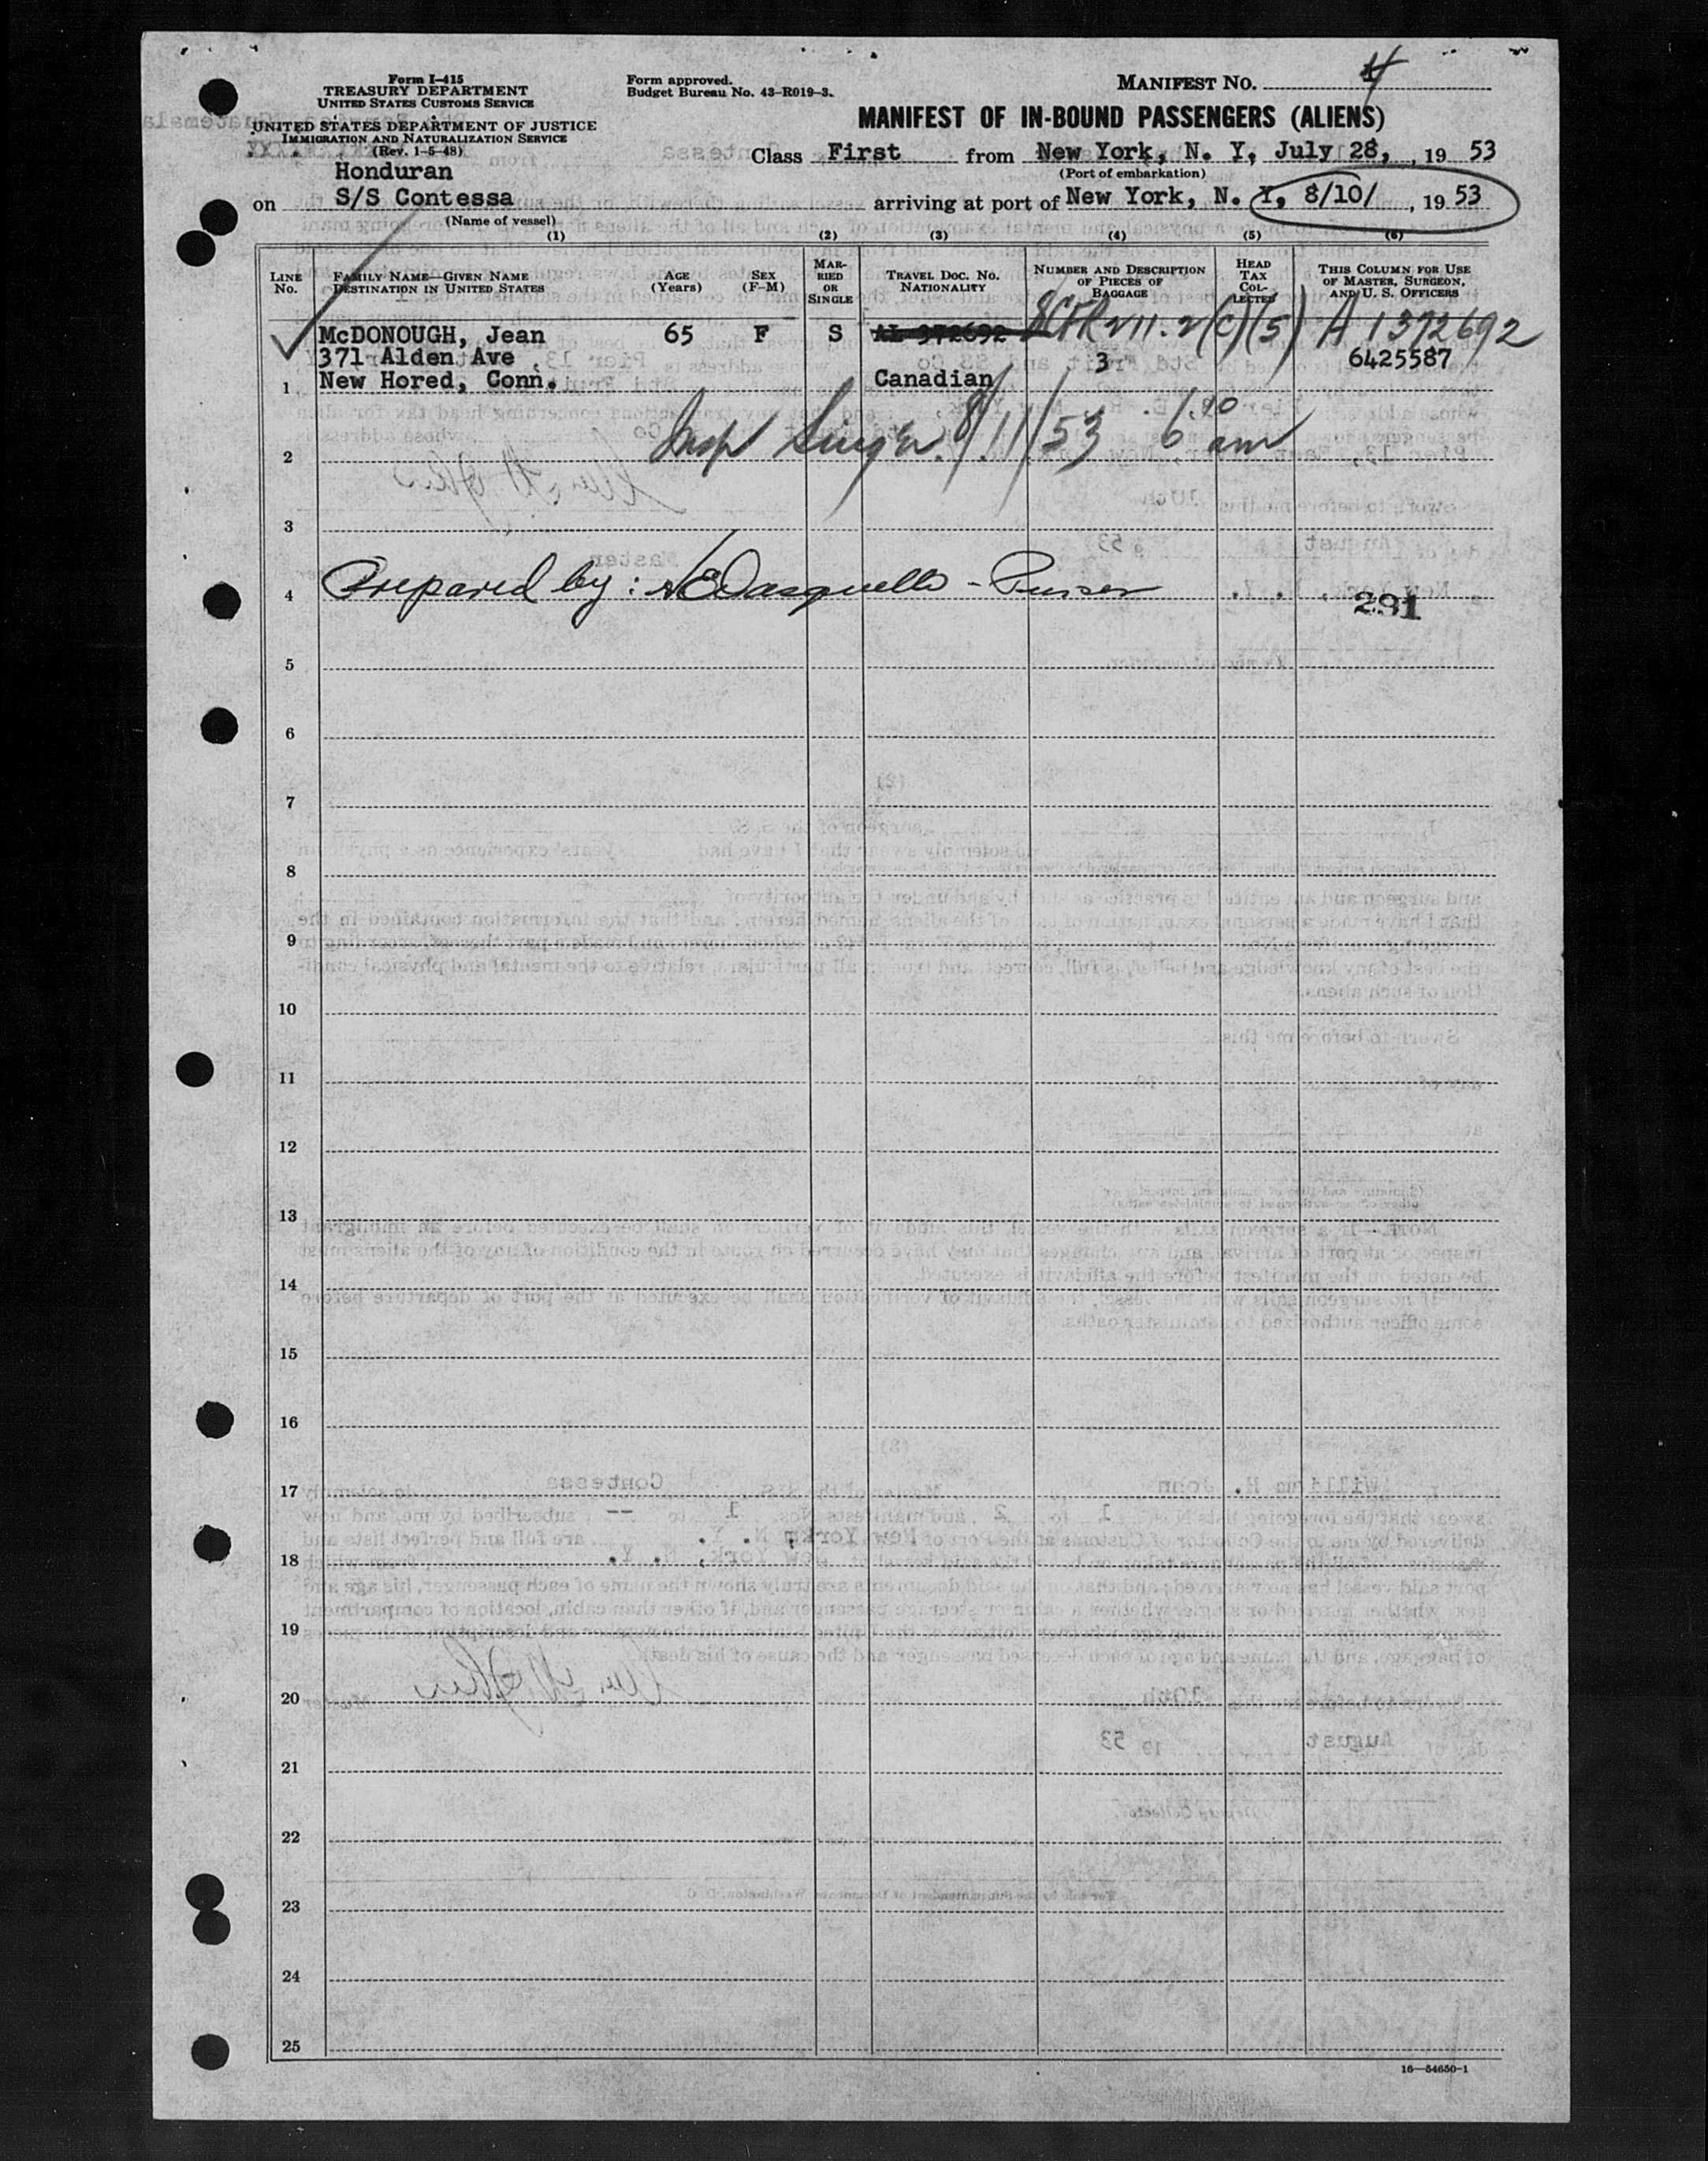 Form I-415
TREASURY DEPARTMENT
UNITED STATES CUSTOMS SERVICE
UNITED STATES DEPARTMENT OF JUSTICE
IMMIGRATION AND NATURALIZATION SERVICE
(Rev. 1-5-48)
Form approved.
Budget Bureau No. 43-R019-3.
MANIFEST NO. 4
MANIFEST OF IN-BOUND PASSENGERS (ALIENS)
Class First from New York, N. Y, July 28, , 19 53
(Port of embarkation)
Honduran
on S/S Contessa arriving at port of New York, N. Y, 8/10/ , 19 53
(Name of vessel)
(1) (2) (3) (4) (5) (6)
LINE No. FAMILY NAME—GIVEN NAME DESTINATION IN UNITED STATES AGE (Years) SEX (F-M) MARRIED OR SINGLE TRAVEL DOC. NO. NATIONALITY NUMBER AND DESCRIPTION OF PIECES OF BAGGAGE HEAD TAX COLLECTED THIS COLUMN FOR USE OF MASTER, SURGEON, AND U. S. OFFICERS
McDONOUGH, Jean 65 F S 8CFR 211.2(c)(5) A 1372692
371 Alden Ave 3 6425587
1 New Hored, Conn. Canadian
2 Insp Singer 8/11/53 6:10 am
3
4 Prepared by: - Purser 291
5
6
7
8
9
10
11
12
13
14
15
16
17
18
19
20
21
22
23
24
25
16—54650-1